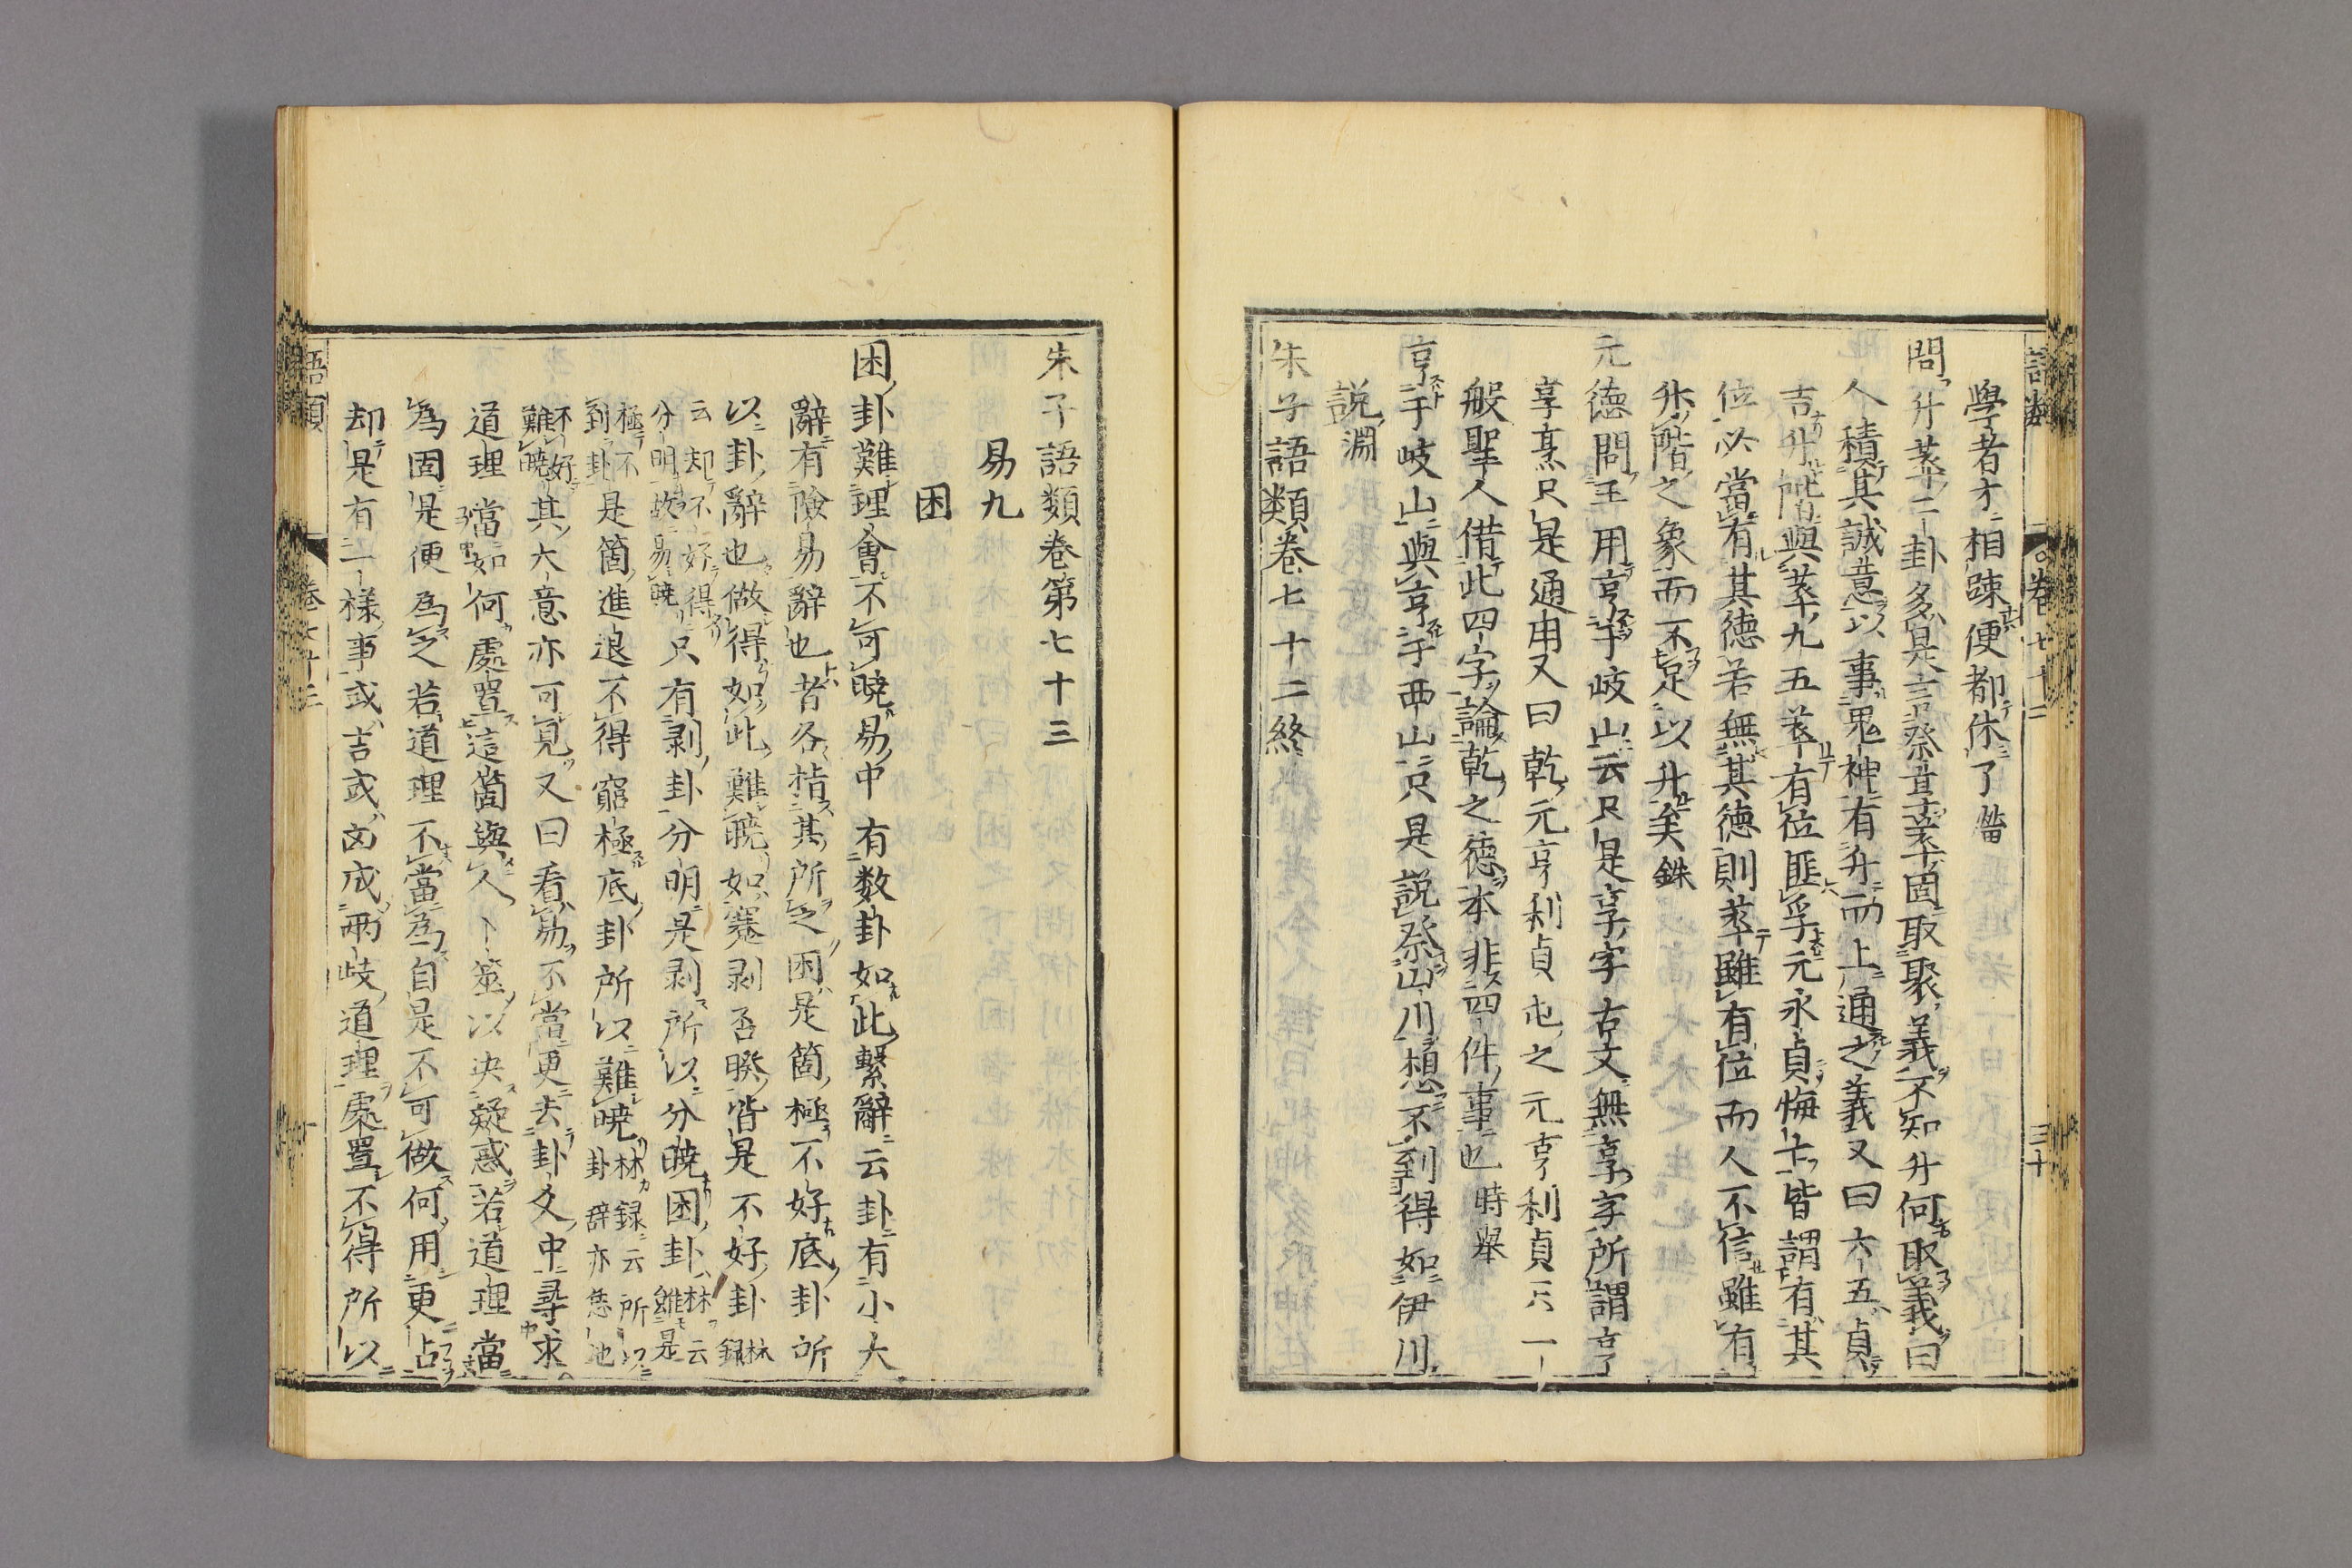 學者才相踈便都休了㽦
問升萃二卦多是言祭享萃固取聚義不知升何取義曰
人積其誠意以事鬼神有升而上通之義又曰六五貞
吉升階與萃九五萃有位匪孚元永貞悔亡皆謂有其
位必當有其德若無其德則萃雖有位而人不信雖有
升階之象而不足以升矣銖
元德問王用亨于岐山云只是享字古文無享字所謂亨
享烹只是通用又曰乾元亨利貞屯之元亨利貞只一
般聖人借此四字論乾之德本非四件事也時舉
亨于岐山與亨于西山只是説祭山川想不到得如伊川
説淵
朱子語類卷七十二終
語類
卷七十二
三十
朱子語類卷第七十三
易九
困
困卦難理會不可曉易中有数卦如此繫辭云卦有小大
辭有險易辭也者各指其所之困是箇極不好底卦所
以卦辭也做得如此難曉如蹇剥否睽皆是不好卦林録
云却不好得分明故易曉只有剥卦分明是剥所以分曉困卦林云雖是
極不好到卦是箇進退不得窮極底卦所以難曉林録云所以卦辞亦恁地
不好難曉其大意亦可見又曰看易不當更去卦爻中尋求
道理當如何處置這箇與人卜筮以决疑惑若道理當
為固是便為之若道理不當為自是不可做何用更占
却是有一樣事或吉或凶成兩歧道理處置不得所以
語類
卷七十三